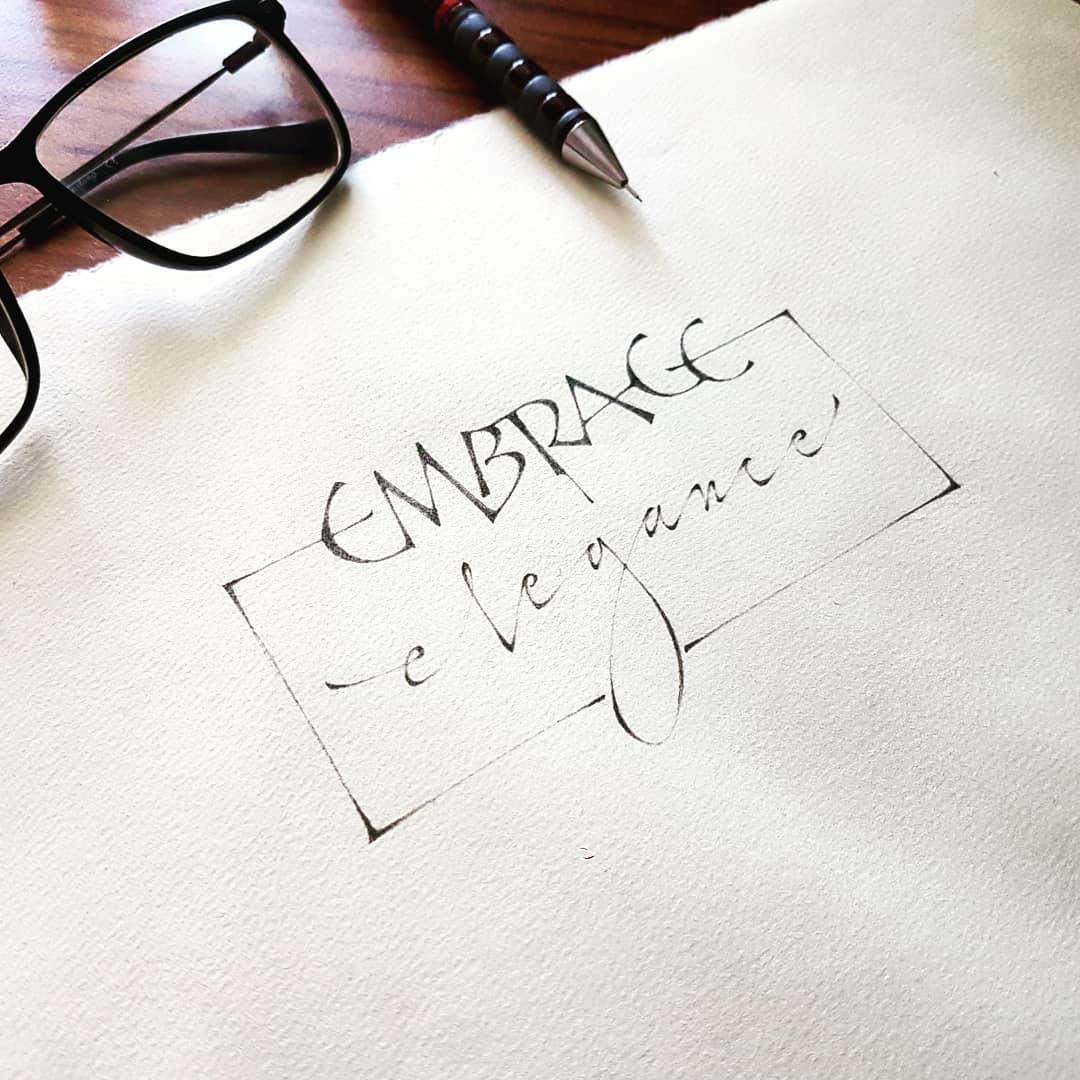 EMBRACE
elegance